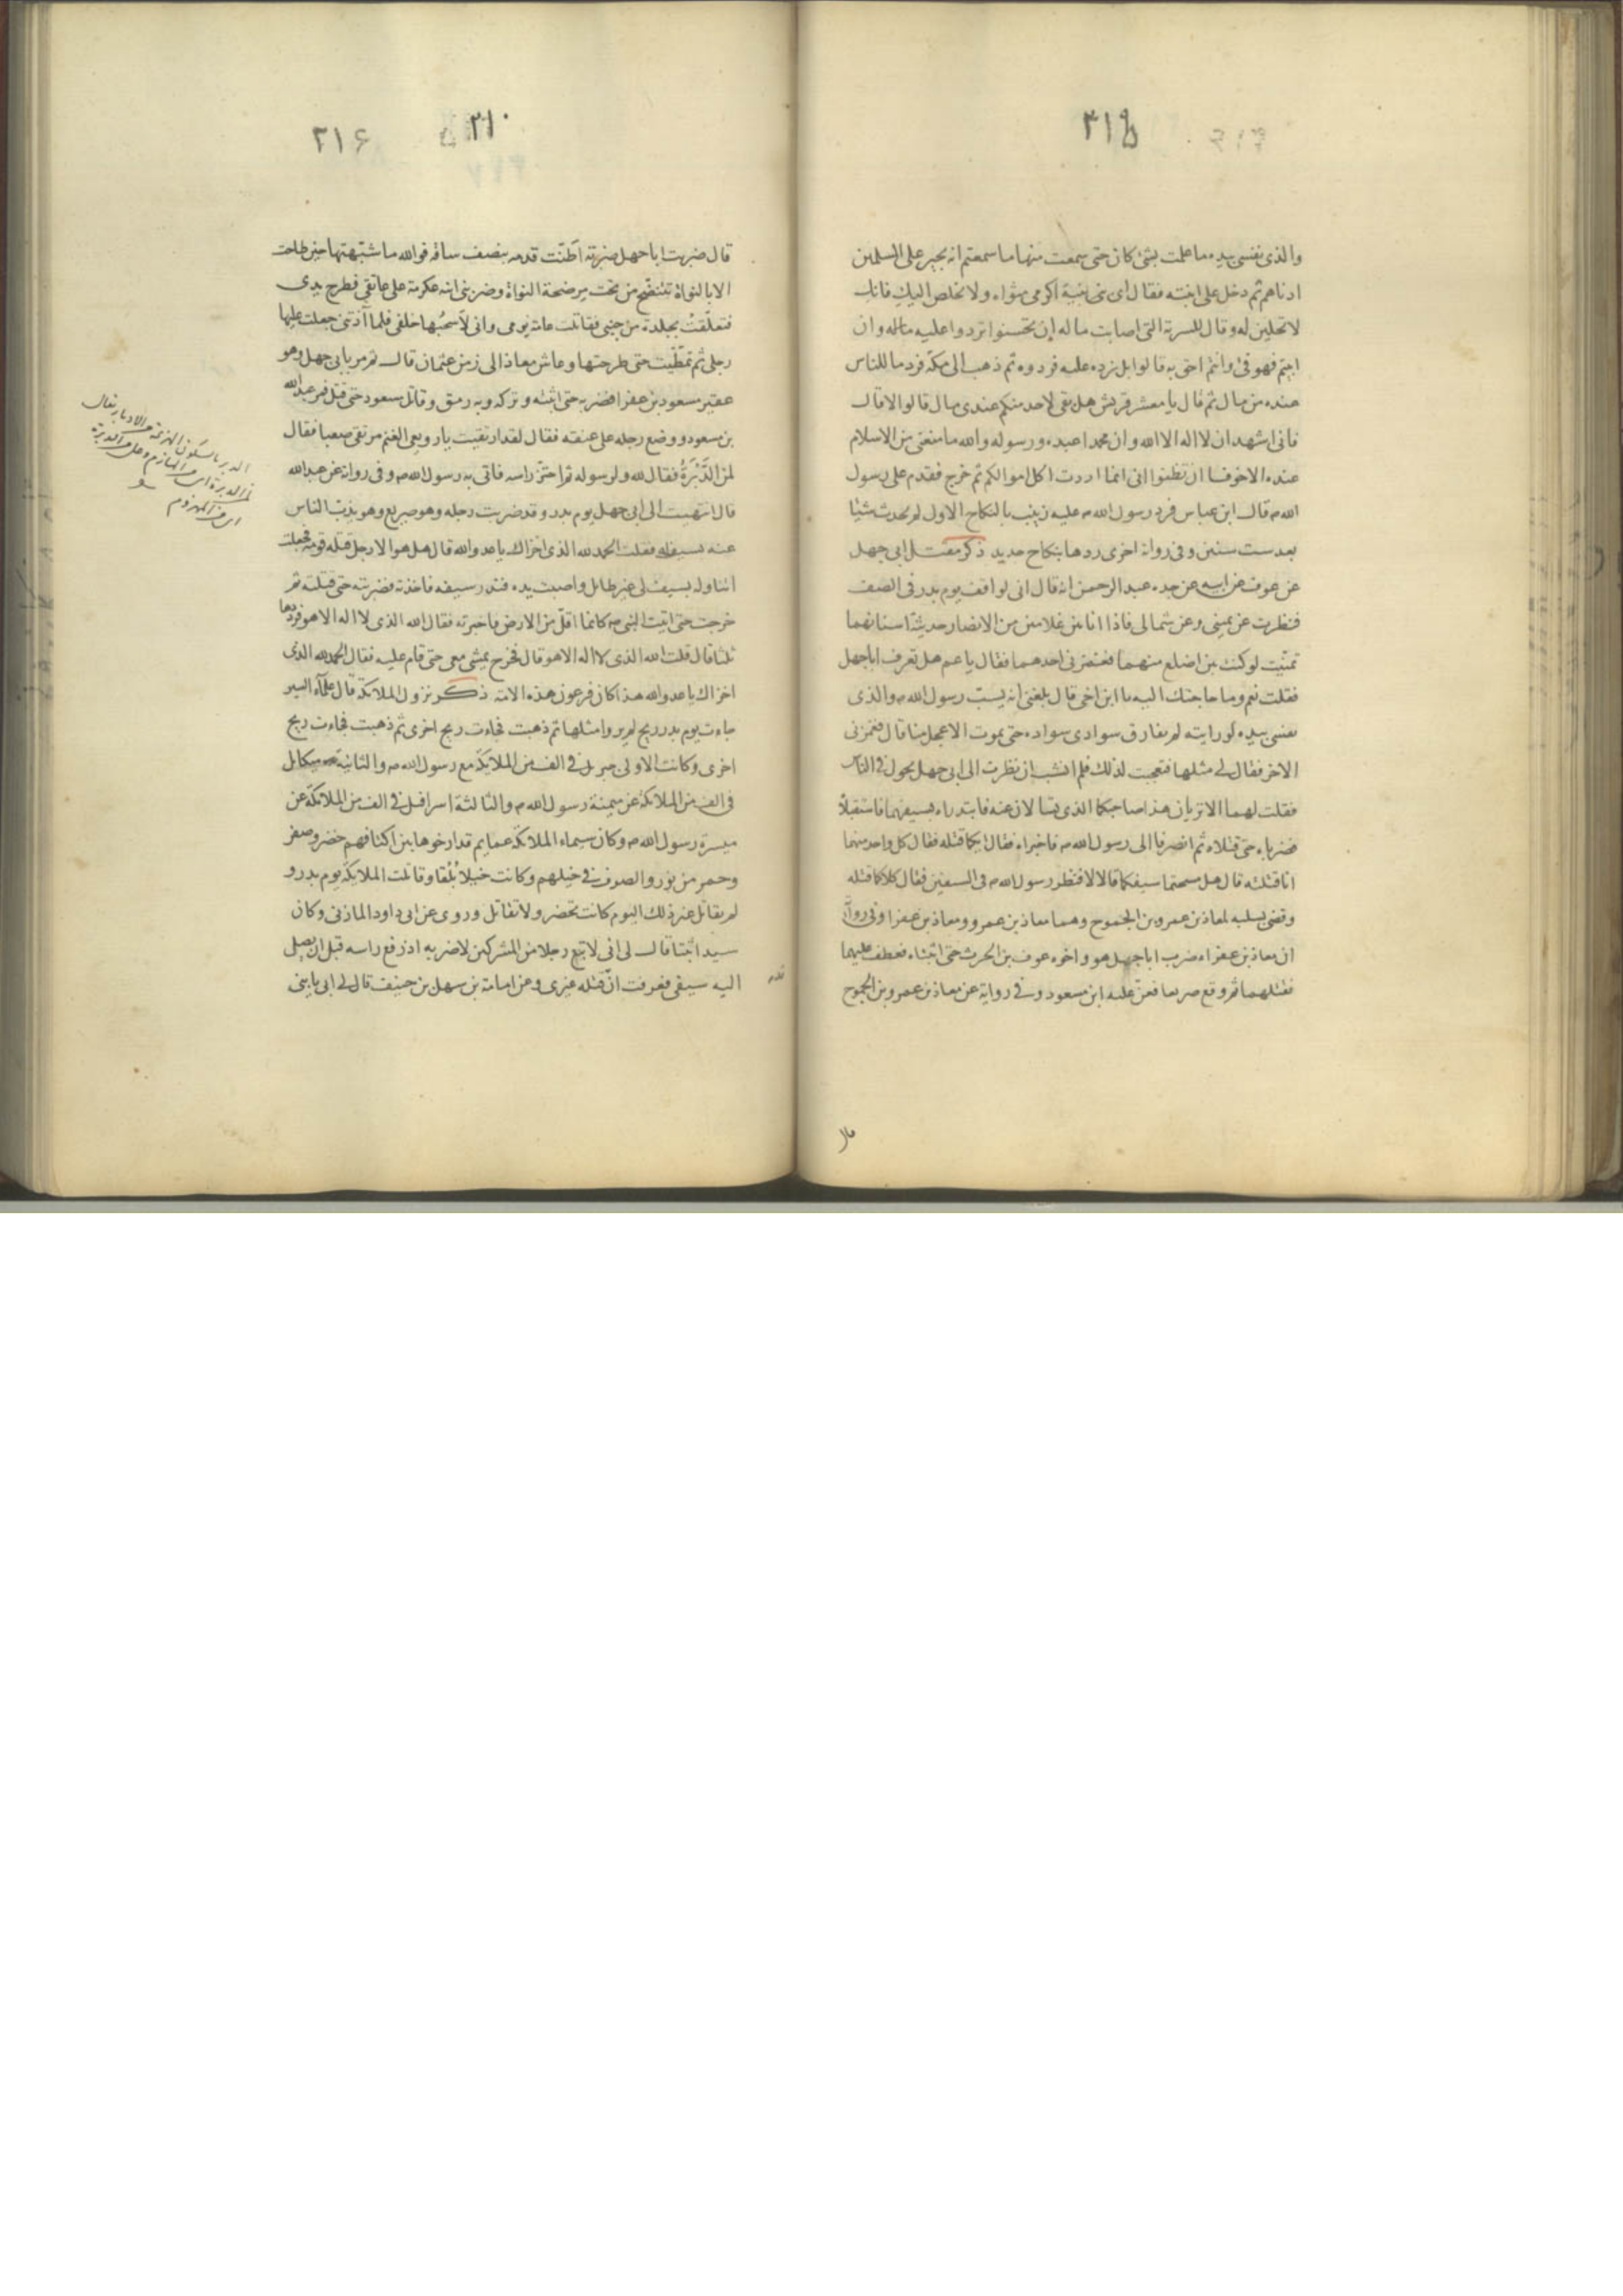 ٣١٥
والذى نفسى بيده ما علمت بشئ كان حتى سمعت منها ما سمعتم انه يجير على المسلمين
ادناهم ثم دخل على ابنته فقال اى بنية اكرمى مثواه ولا يخلص اليك فانك
لا تحلين له وقال للسرية التى اصابت ماله ان تحسنوا تردوا عليه ماله وان
ابيتم فهو فئ وانتم احق به قالوا بل نرده عليه فردوه ثم ذهب الى مكة فرد ما للناس
عنده من مال ثم قال يا معشر قريش هل بقى لاحد منكم عندى مال قالوا لا قال
فانى اشهد ان لا اله الا الله وان محمدا عبده ورسوله والله ما منعنى من الاسلام
عنده الا خوفا ان تظنوا انى انما اردت اكل اموالكم ثم خرج فقدم على رسول
الله ص قال ابن عباس فرد رسول الله ص عليه زينب بالنكاح الاول لم يحدث شيئا
بعد ست سنين وفى رواية اخرى ردها بنكاح جديد ذكر مقتل ابى جهل
عن عوف عن ابيه عن جده عبد الرحمن انه قال انى لواقف يوم بدر فى الصف
فنظرت عن يمينى وعن شمالى فاذا انا بين غلامين من الانصار حديثة اسنانهما
تمنيت لو كنت بين اضلع منهما فغمزنى احدهما فقال يا عم هل تعرف ابا جهل
فقلت نعم وما حاجتك اليه يا ابن اخى قال بلغنى انه يسب رسول الله ص والذى
نفسى بيده لو رايته لم يفارق سوادى سواده حتى يموت الاعجل منا قال فغمزنى
الاخر فقال لى مثلها فتعجبت لذلك فلم انشب ان نظرت الى ابى جهل يجول فى الناس
فقلت لهما الا تريان هذا صاحبكما الذى تسالان عنه فابتدراه بسيفيهما فاستقبلا
فضرباه حتى قتلاه ثم انصرفا الى رسول الله ص فاخبراه فقال ايكما قتله فقال كل واحد منهما
انا قتلته قال هل مسحتما سيفكما قالا لا فنظر رسول الله ص فى السيفين فقال كلاكما قتله
وقضى بسلبه لمعاذ بن عمرو بن الجموح وهما معاذ بن عمرو ومعاذ بن عفرا وفى رواية
ان معاذ بن عفراء ضرب ابا جهل هو واخوه عوف بن الحرث حتى اثبتاه فعطف عليهما
فقتلهما ثم وقع صريعا فعن عليه ابن مسعود وفى رواية عن معاذ بن عمرو بن الجموح
قال
٣١٠
٣١۶
قال ضربت ابا جهل ضربة اَطَنّت قدمه بنصف ساقه فوالله ما شبهتها حين طاحت
الا بالنواة تتنضح من تحت مرضحة النواة وضربنى ابنه عكرمة على عاتقى فطرح يدى
فتعلّقتُ بجلدة من جنبى فقاتلت عامة يومى وانى لاسحبُها خلفى فلما آذتنى جعلت عليها
رجلى ثم تمطّيت حتى طرحتها وعاش معاذ الى زمن عثمان قال ثم مر بابى جهل وهو
عقير مسعود بن عفرا فضربه حتى اثبته وتركه وبه رمق وقاتل مسعود حتى قتل فمر عبدالله
بن مسعود ووضع رجله على عنقه فقال لقد ارتقيت يا رويعى الغنم مرتقى صعبا فقال
لمن الدَّبْرَةُ فقال لله ولرسوله ثم احتزّ راسه فاتى به رسول الله ص وفى رواية عن عبدالله
قال انتهيت الى ابى جهل يوم بدر وقد ضربت رجله وهو صريع وهو يذب الناس
عنه بسيف له فقلت الحمد لله الذى اخزاك يا عدو الله قال هل هو الا رجل قتله قومه فجعلت
اتناوله بسيف لى غير طايل واصبت يده فندر سيفه فاخذته فضربته حتى قتلته ثم
خرجت حتى اتيت النبى ص كانما اقلّ من الارض فاخبرته فقال الله الذى لا اله الا هو فرددها
ثلثا قال قلت الله الذى لا اله الا هو قال فخرج يمشى معى حتى قام عليه فقال الحمد لله الذى
اخزاك يا عدو الله هذا كان فرعون هذه الامة ذكر نزول الملائكة قال علمآء السير
جاءت يوم بدر ريح لم يروا مثلها ثم ذهبت فجاءت ريح اخرى ثم ذهبت فجاءت ريح
اخرى وكانت الاولى جبريل فى الف من الملائكة مع رسول الله ص والثانية ميكائل
فى الف من الملائكة عن ميمنة رسول الله ص والثالثة اسرافيل فى الف من الملائكة عن
ميسرة رسول الله ص وكان سيماء الملائكة عمايم قد ارخوها بين اكتافهم خضر وصفر
وحمر من نور والصوف فى خيلهم وكانت خيلا بُلْقا وقاتلت الملايكة يوم بدر و
لم يقاتل غير ذلك اليوم كانت تحضر ولا تقاتل وروى عن ابى داود المازنى وكان
سيد اثبتا قال لى انى لا تبع رجلا من المشركين لاضربه اذ وقع راسه قبل ان يصل
اليه سيفى فعرفت انّ قتله غيرى وعن امامة بن سهل بن حنيف قال لى ابى يا بنى
الدبر بالسكون الهزيمة والادبار يقال